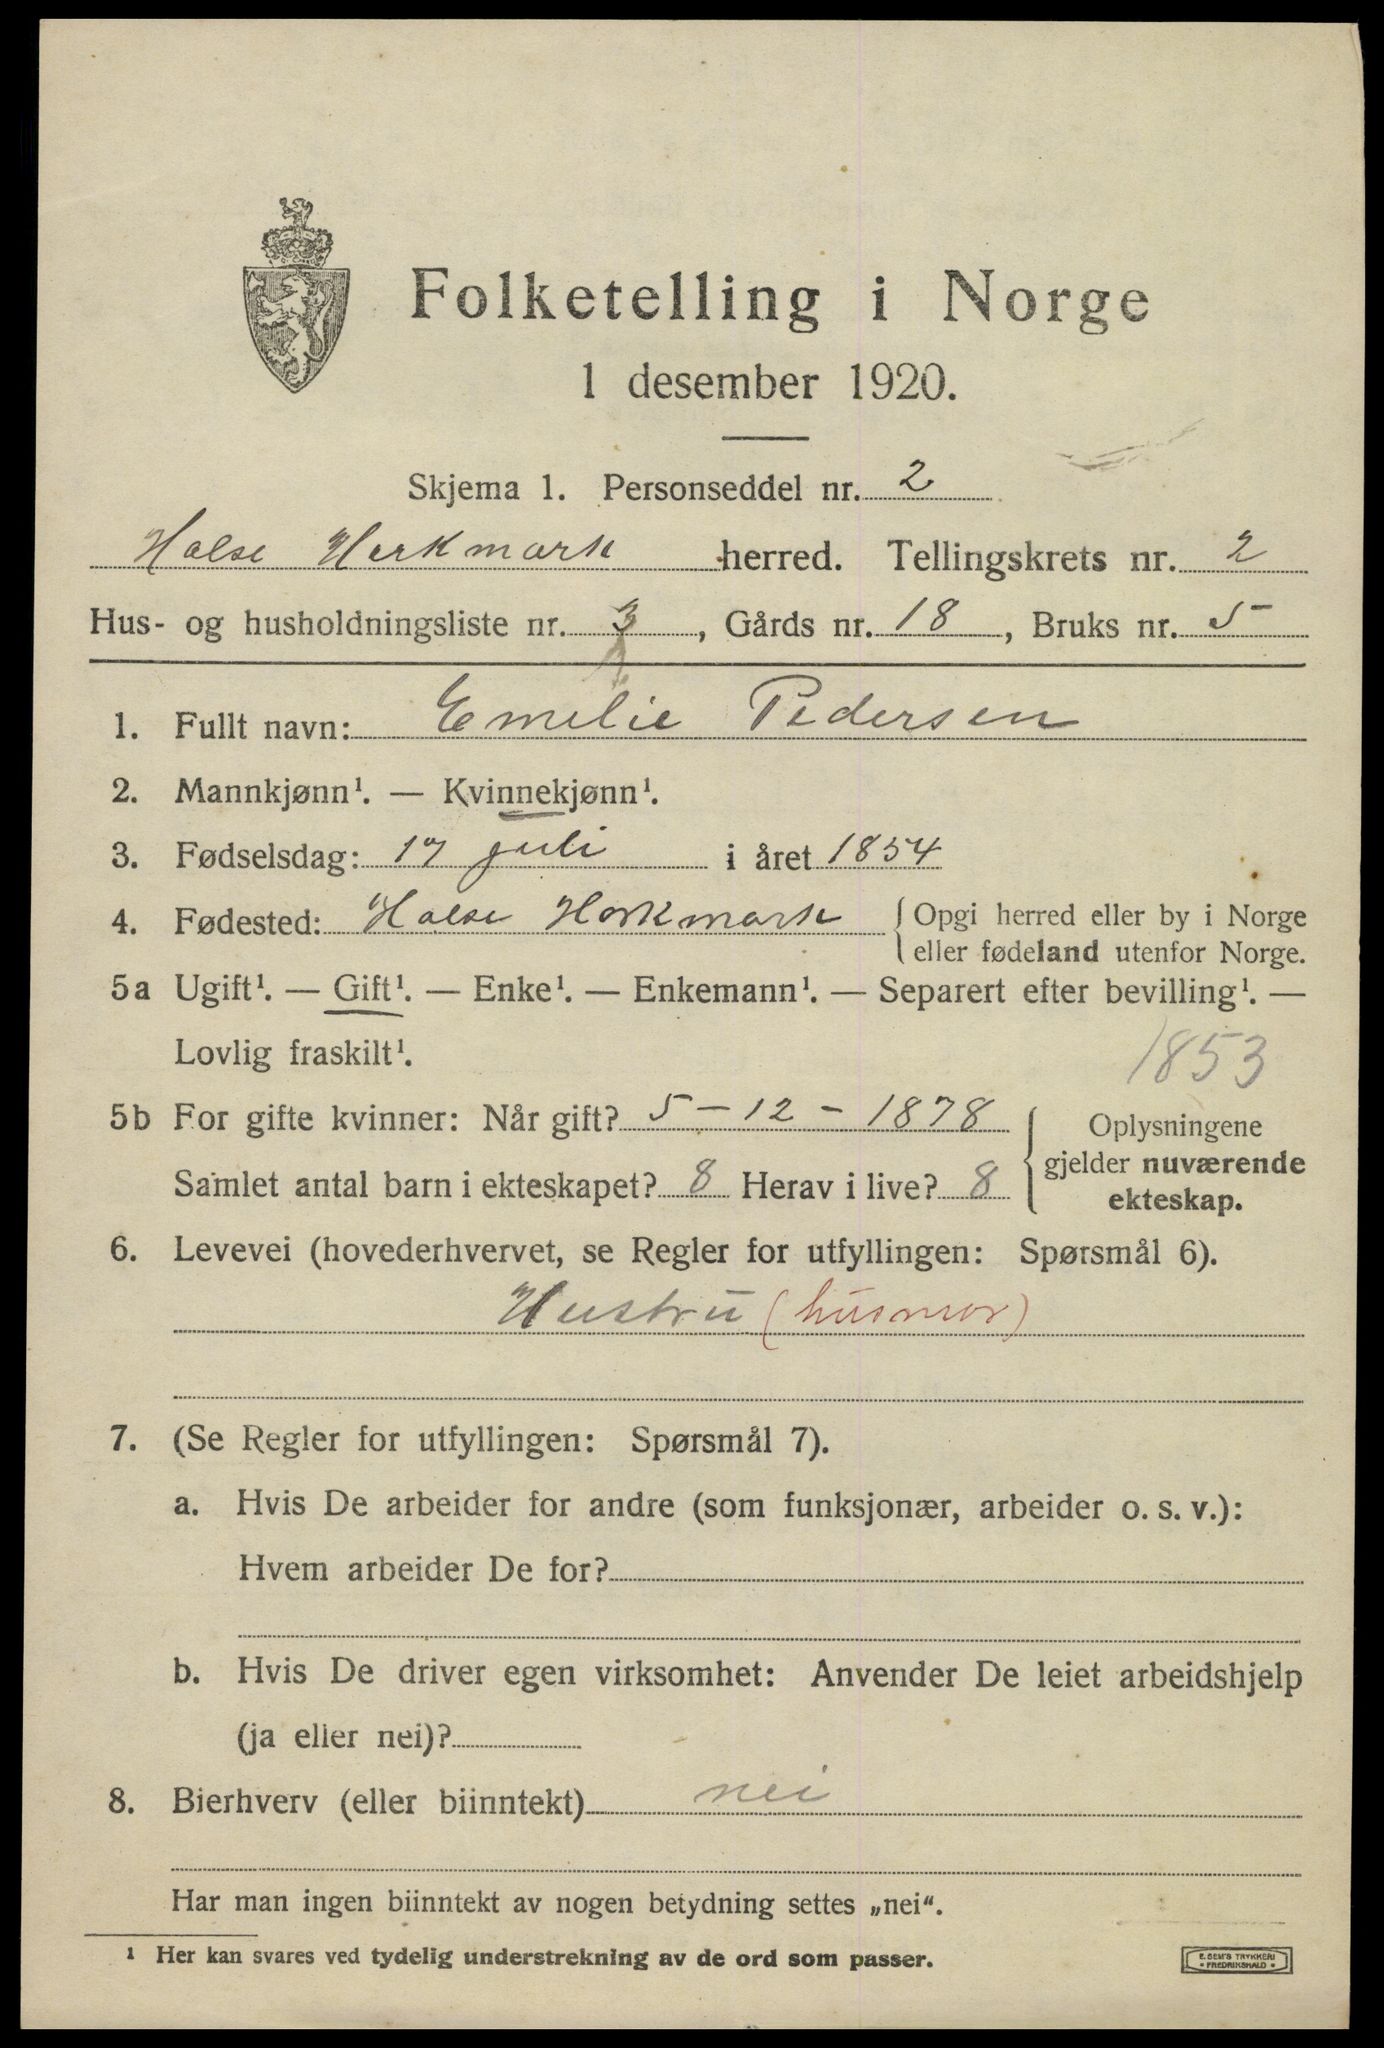 Folketelling i Norge
1 desember 1920.
Skjema 1. Personseddel nr. 2
Halse Harkmark herred. Tellingskrets nr. 2
Hus- og husholdningsliste nr. 3, Gårds nr. 18, Bruks nr. 5
1. Fullt navn: Emelie Pedersen
2. Mannkjønn¹. — Kvinnekjønn¹.
3. Fødselsdag: 17 juli i året 1854
4. Fødested: Halse Harkmark { Opgi herred eller by i Norge
eller fødeland utenfor Norge.
5a Ugift¹. — Gift¹. — Enke¹. — Enkemann¹. — Separert efter bevilling¹. —
Lovlig fraskilt¹.
1853
5b For gifte kvinner: Når gift? 5 - 12 - 1878 { Oplysningene
gjelder nuværende
Samlet antal barn i ekteskapet? 8 Herav i live? 8
ekteskap.
6. Levevei (hovederhvervet, se Regler for utfyllingen: Spørsmål 6).
Hustru (husmor)
7. (Se Regler for utfyllingen: Spørsmål 7).
a. Hvis De arbeider for andre (som funksjonær, arbeider o. s. v.):
Hvem arbeider De for?
b. Hvis De driver egen virksomhet: Anvender De leiet arbeidshjelp
(ja eller nei)?
8. Bierhverv (eller biinntekt) nei
Har man ingen biinntekt av nogen betydning settes „nei“.
¹ Her kan svares ved tydelig understrekning av de ord som passer.
E. SEM'S TRYKKERI
• FREDRIKSHALD •